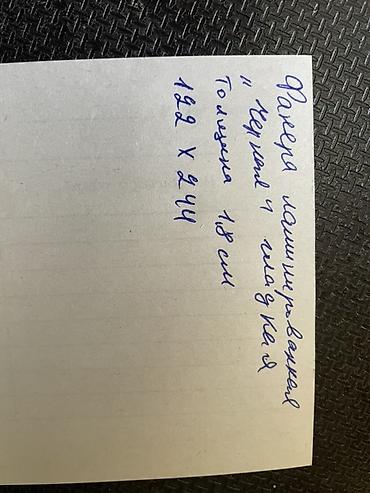 Фанера ламинированная
"Черная" гладкая
Толщина 1,8 см
122 х 244